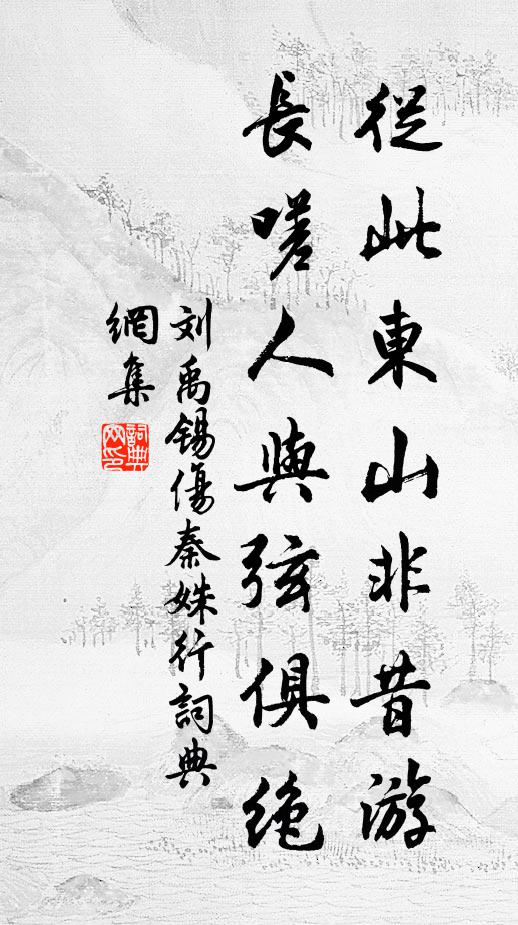 從此東山非昔游
長嗟人與弦俱絶
刘禹錫傷秦姝行詞典
網集
詞典網印